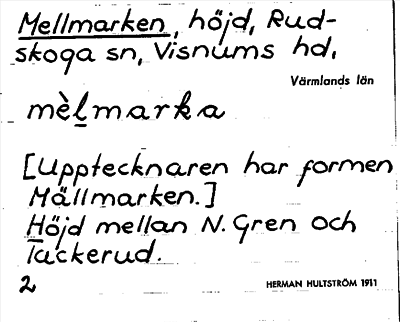 Mellmarken, höjd, Rud-
skoga sn, Visnums hd,
Värmlands län
mèl̲marka
[Upptecknaren har formen
Mällmarken.]
Höjd mellan N. Gren och
Tackerud.
2
HERMAN HULTSTRÖM 1911